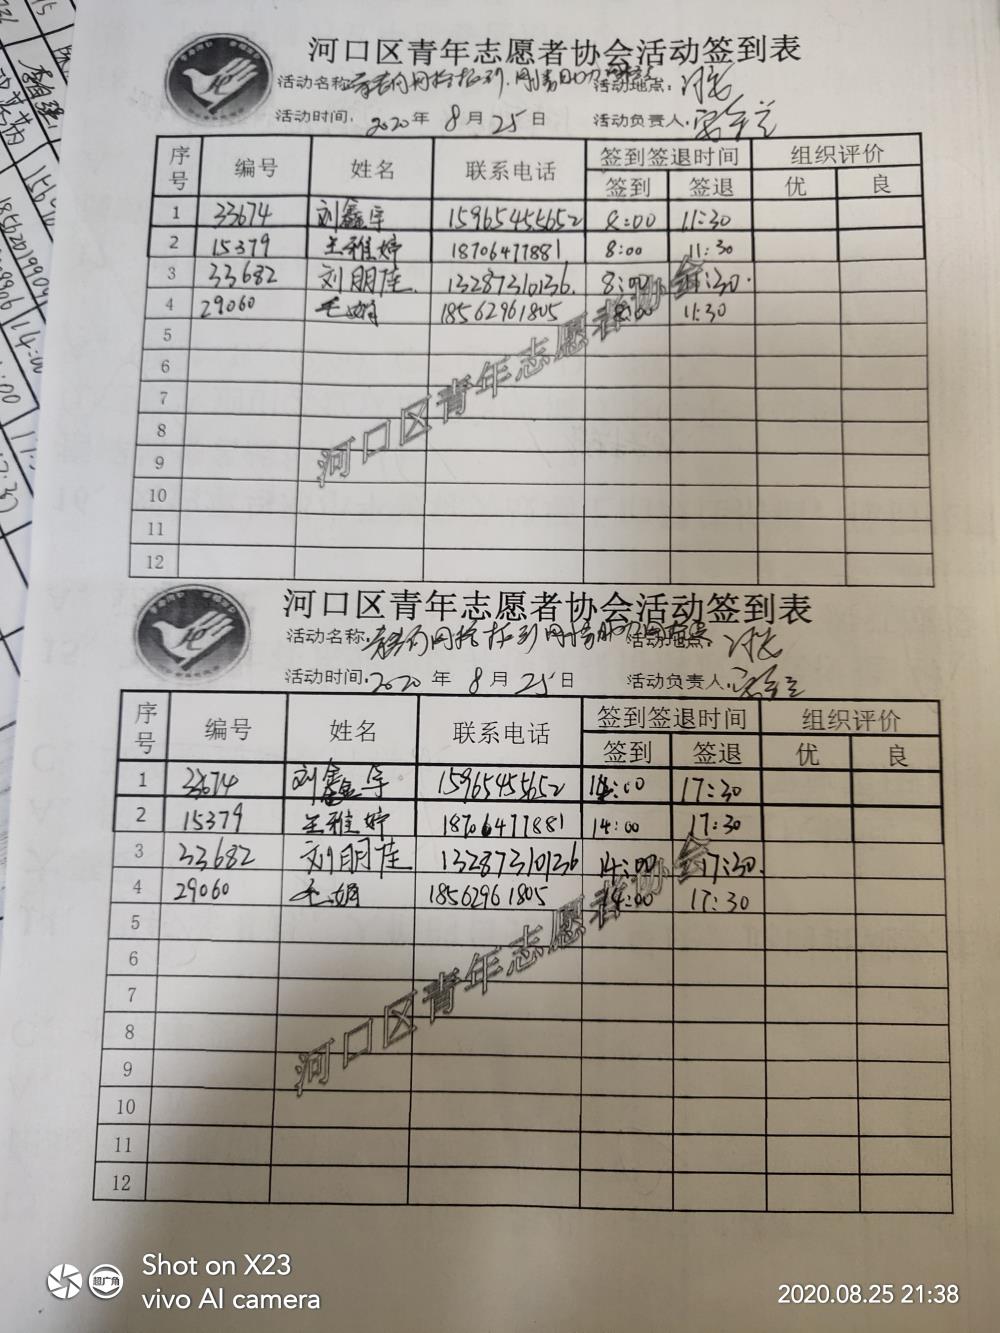 河口区青年志愿者协会活动签到表
活动名称: 活动地点:
活动时间: 2020年 8月25日 活动负责人:
序号 编号 姓名 联系电话 签到签退时间 组织评价
签到 签退 优 良
1 33674 刘鑫宇 15965455652 8:00 11:30
2 15379 王雅婷 18706477881 8:00 11:30
3 33682 刘朋佳 13287310136 8:00 11:30
4 29060 毛娟 18562961805 8:00 11:30
5
6
7
8
9
10
11
12
河口区青年志愿者协会
河口区青年志愿者协会活动签到表
活动名称: 活动地点:
活动时间: 2020年 8月25日 活动负责人:
序号 编号 姓名 联系电话 签到签退时间 组织评价
签到 签退 优 良
1 33674 刘鑫宇 15965455652 14:00 17:30
2 15379 王雅婷 18706477881 14:00 17:30
3 33682 刘朋佳 13287310136 14:00 17:30
4 29060 毛娟 18562961805 14:00 17:30
5
6
7
8
9
10
11
12
河口区青年志愿者协会
超广角
Shot on X23
vivo AI camera
2020.08.25 21:38